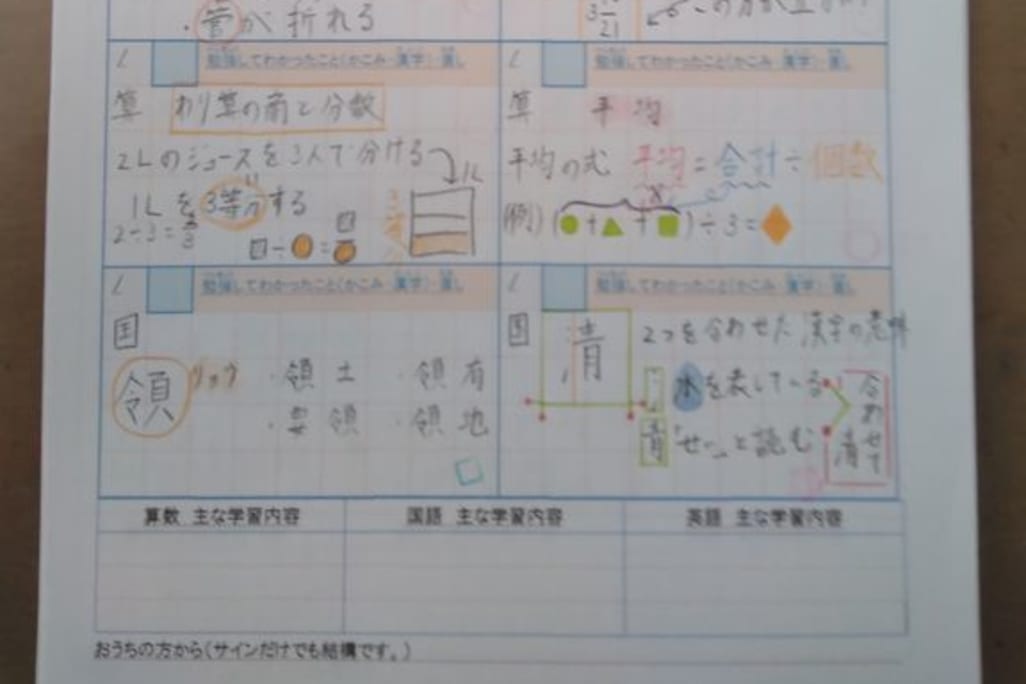 ・管が折れる
3 21
勉強してわかったこと(かこみ・漢字)・直し
算 わり算の商と分数
2Lのジュースを3人で分ける 1L
1Lを3等分する
2÷3=2/3
□÷●=□/●
勉強してわかったこと(かこみ・漢字)・直し
算 平均
平均の式 平均=合計÷個数
(例) (●+▲+■)÷3=◆
勉強してわかったこと(かこみ・漢字)・直し
国
領 リョウ ・領土 ・領有
・要領 ・領地
勉強してわかったこと(かこみ・漢字)・直し
国 清 2つを合わせた漢字の意味
氵 水を表している
青 「せい」と読む
合わせて清
算数 主な学習内容
国語 主な学習内容
英語 主な学習内容
おうちの方から(サインだけでも結構です。)